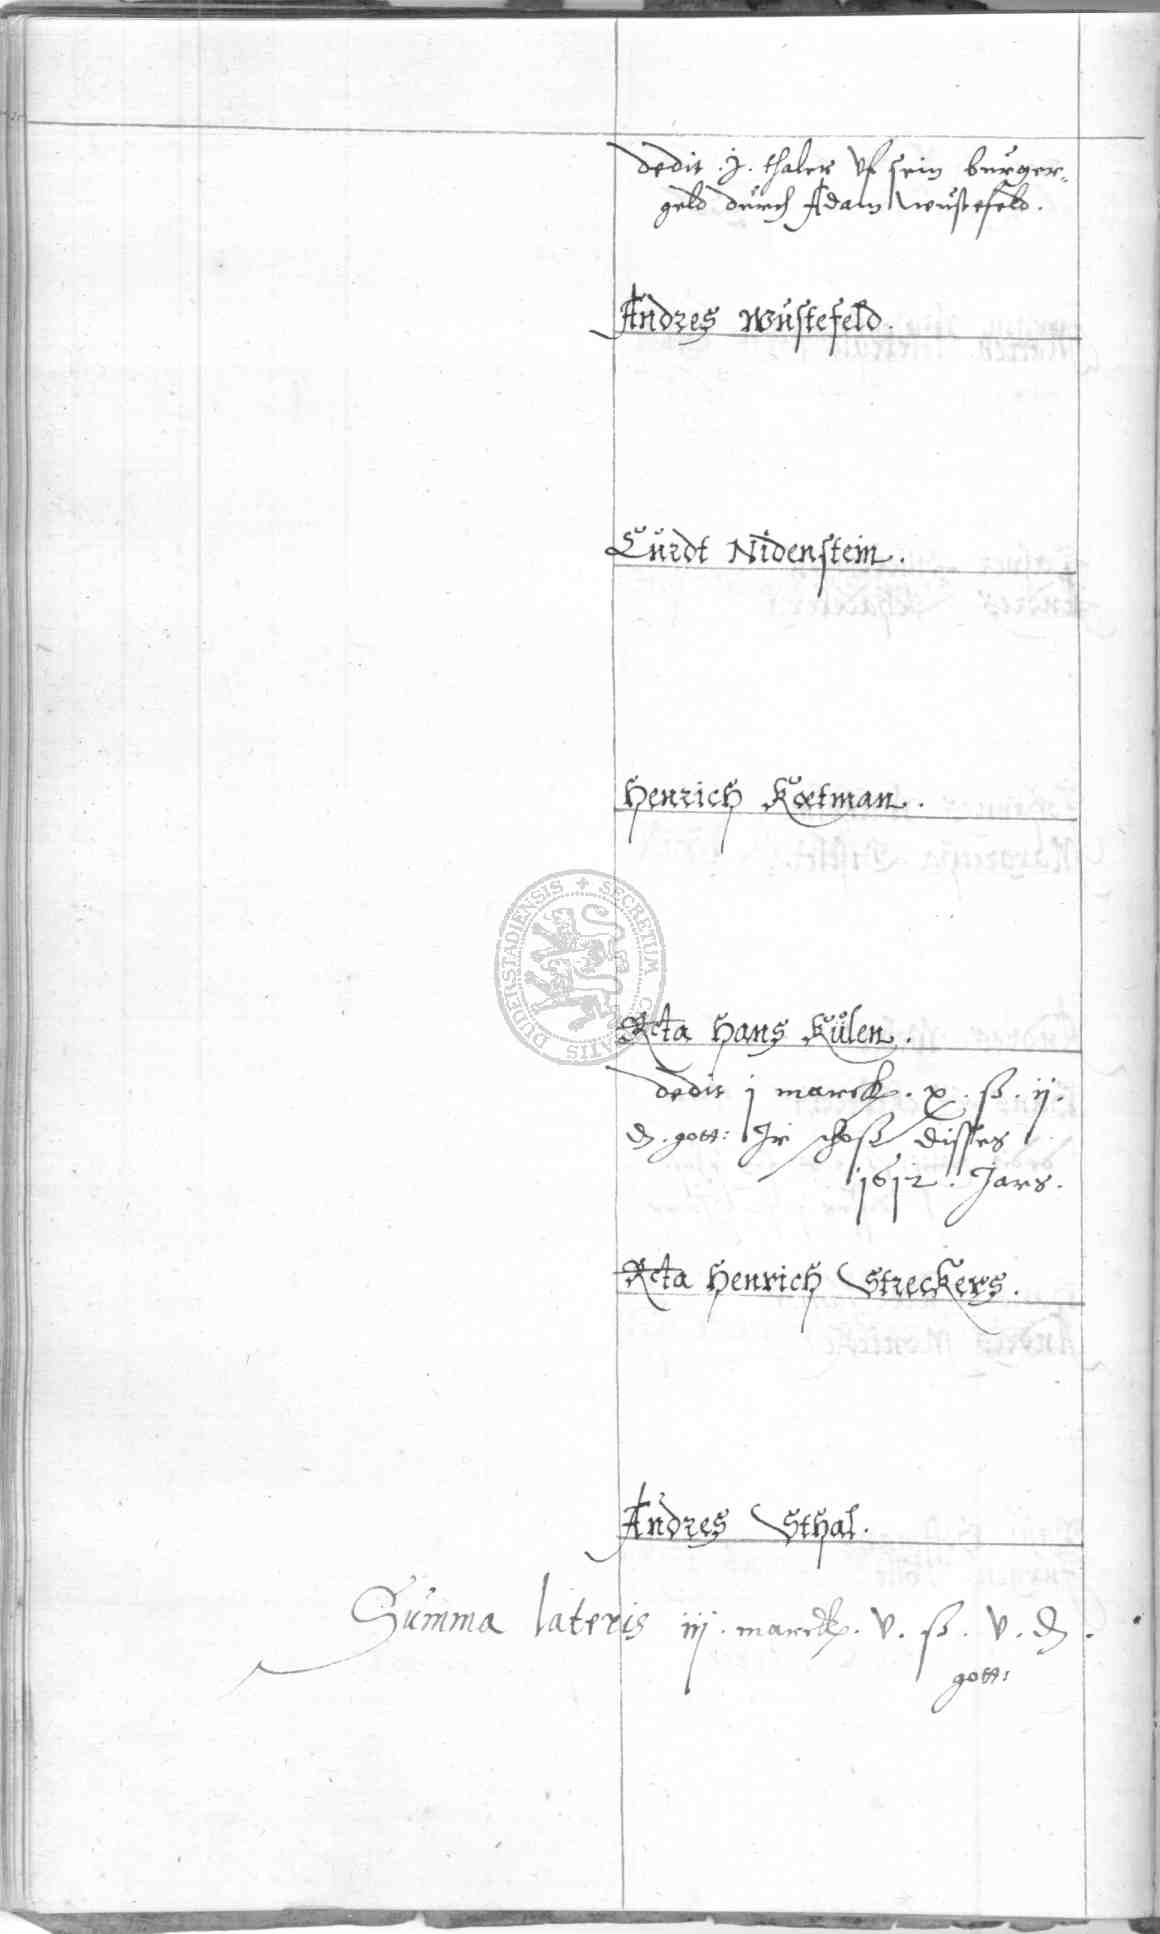 dedit .j. thaler Vf sein burger-
geld durch Adam Wustefeld.
Andres Wustefeld.
Curdt Nidenstein.
Henrich Koetman.
SECRETUM CIVITATIS DUDERSTADIENSIS
Rcta Hans Külen.
dedit j marck. x. ß. ij.
d. gott: Jr schoß disses
1612. Jars.
Rcta Henrich Streckers.
Andres Sthal.
Summa lateris iij. marck. v. ß. v. d.
gott: